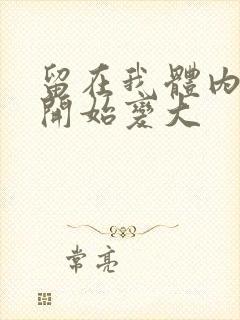 留在我體內
開始變大
常亮